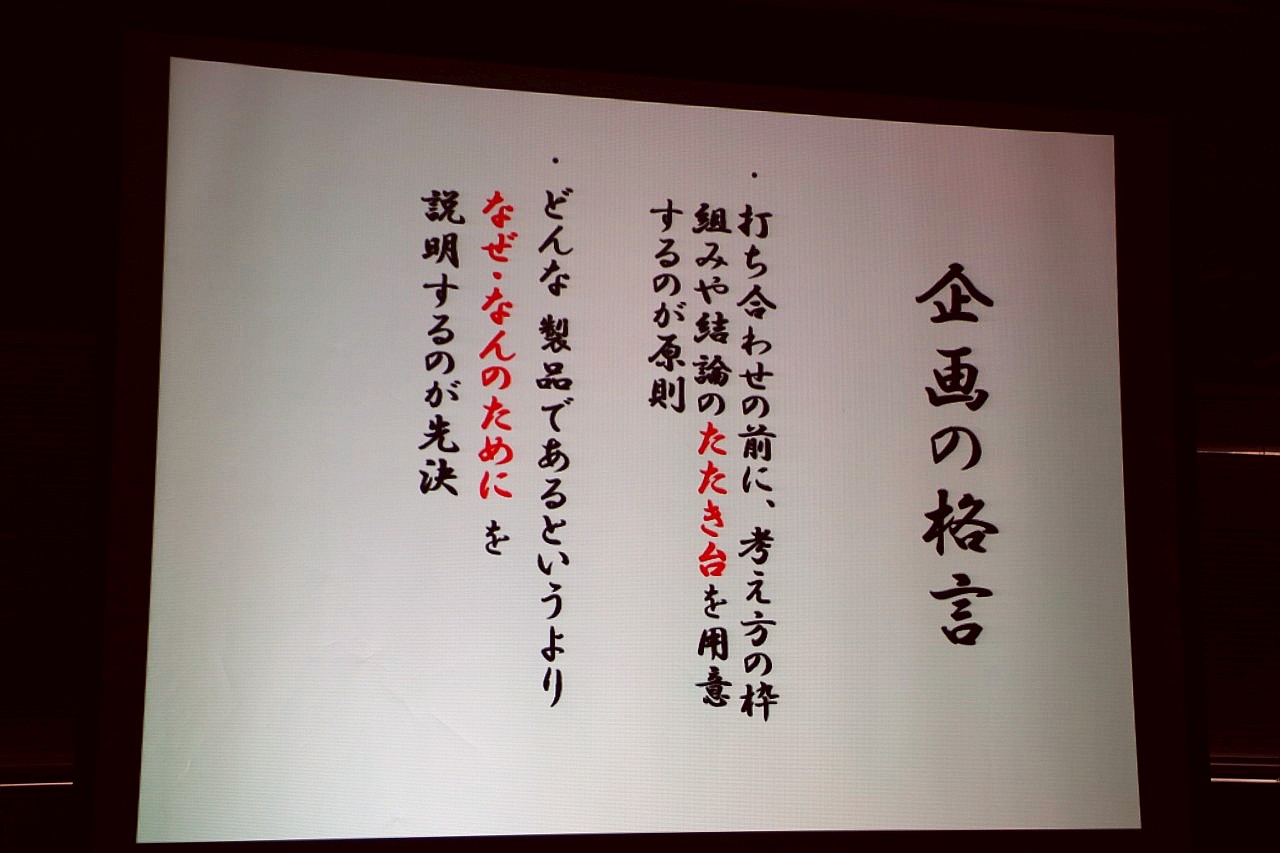 企画の格言
・打ち合わせの前に、考え方の枠
組みや結論のたたき台を用意
するのが原則
・どんな製品であるというより
なぜ・なんのためにを
説明するのが先決